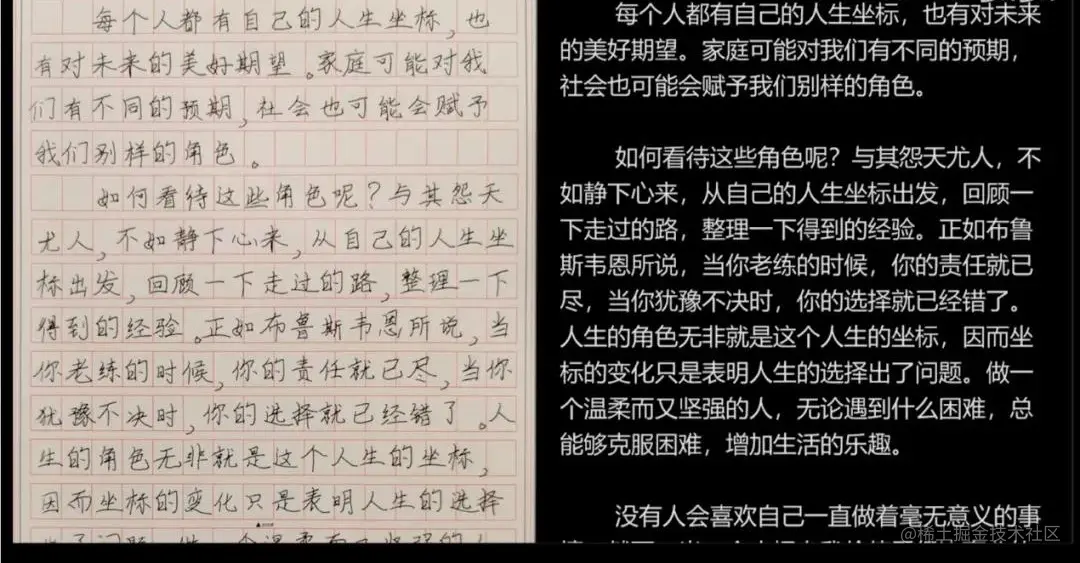 每个人都有自己的人生坐标,也
有对未来的美好期望。家庭可能对我
们有不同的预期,社会也可能会赋予
我们别样的角色。
如何看待这些角色呢?与其怨天
尤人,不如静下心来,从自己的人生坐
标出发,回顾一下走过的路,整理一下
得到的经验。正如布鲁斯韦恩所说,当
你老练的时候,你的责任就已尽,当你
犹豫不决时,你的选择就已经错了。人
生的角色无非就是这个人生的坐标,
因而坐标的变化只是表明人生的选择
每个人都有自己的人生坐标,也有对未来
的美好期望。家庭可能对我们有不同的预期,
社会也可能会赋予我们别样的角色。
如何看待这些角色呢?与其怨天尤人,不
如静下心来,从自己的人生坐标出发,回顾一
下走过的路,整理一下得到的经验。正如布鲁
斯韦恩所说,当你老练的时候,你的责任就已
尽,当你犹豫不决时,你的选择就已经错了。
人生的角色无非就是这个人生的坐标,因而坐
标的变化只是表明人生的选择出了问题。做一
个温柔而又坚强的人,无论遇到什么困难,总
能够克服困难,增加生活的乐趣。
没有人会喜欢自己一直做着毫无意义的事
@稀土掘金技术社区